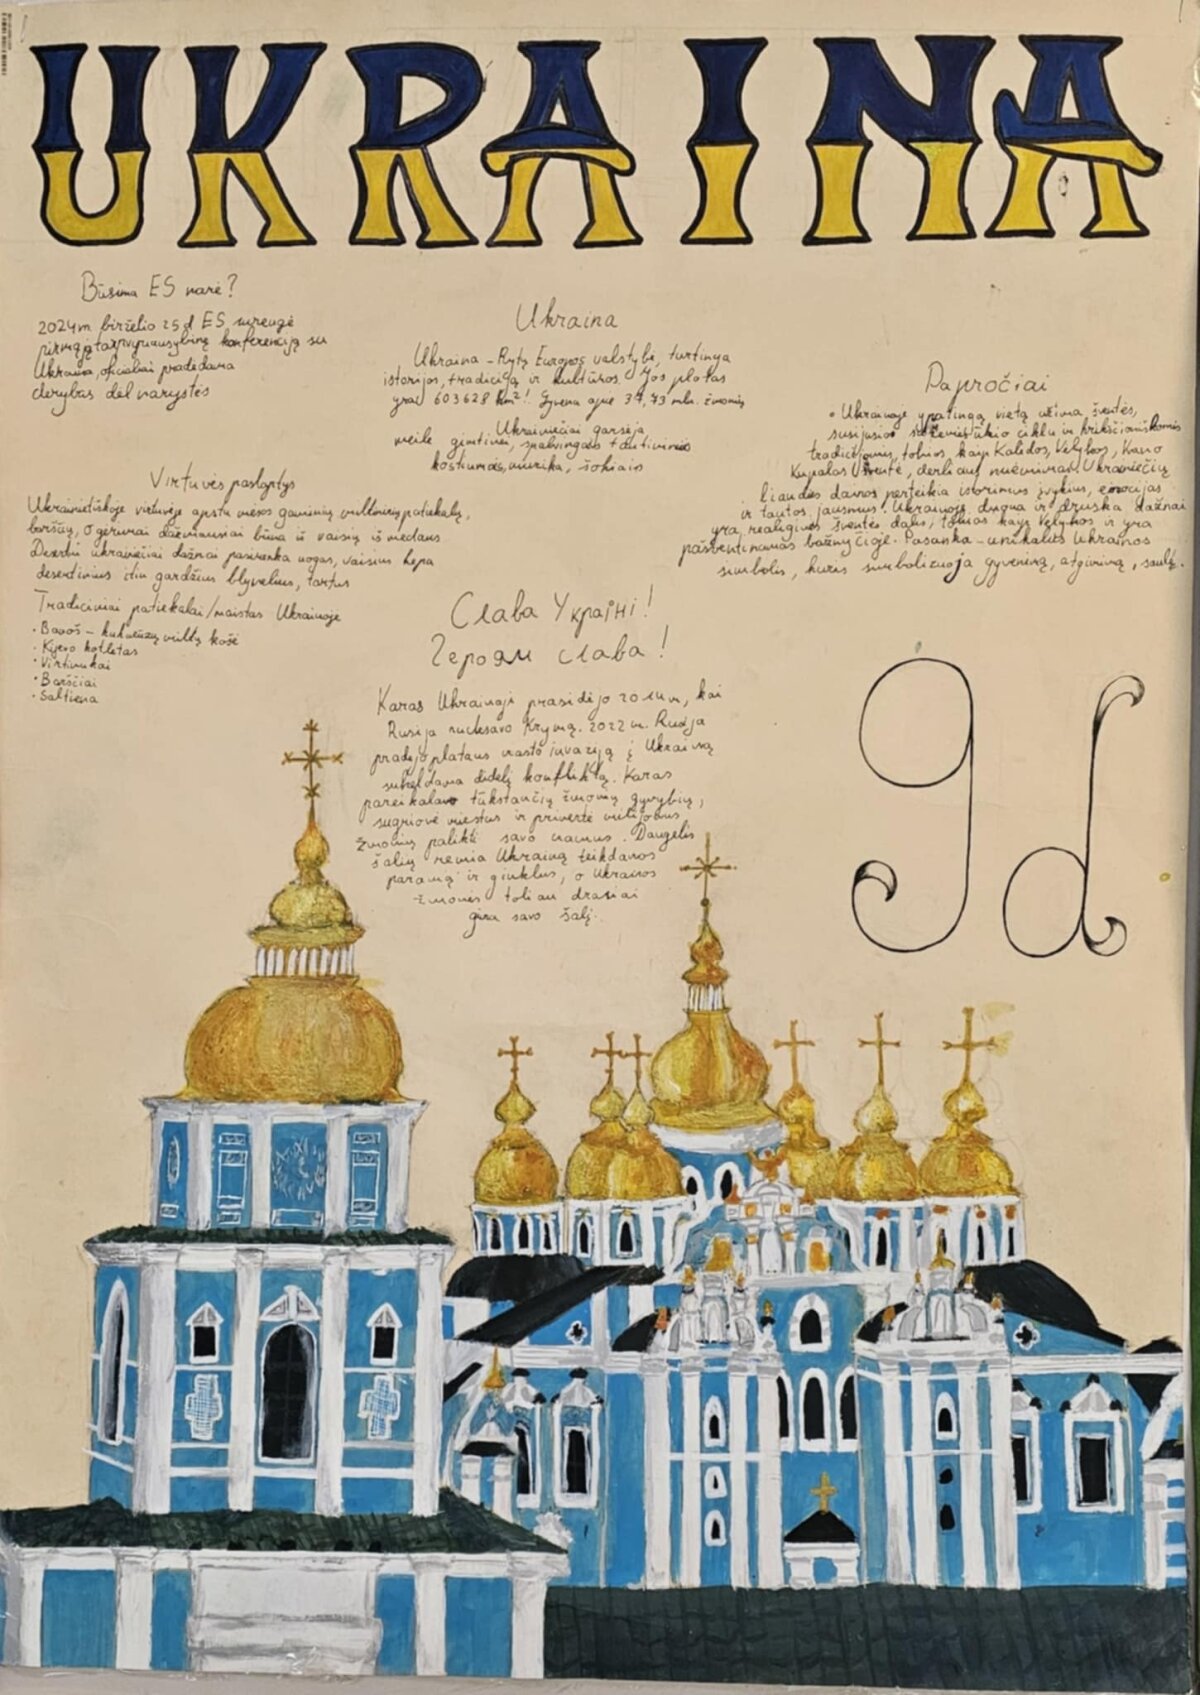 UKRAINA
Būsima ES narė?
2024m. birželio 25d ES surengė
pirmąją tarpvyriausybinę konferenciją su
Ukraina, oficialiai pradedama
derybas dėl narystės
Ukraina
Ukraina - Rytų Europos valstybė, turtinga
istorijos, tradicijų ir kultūros. Jos plotas
yra 603628 km²! Gyvena apie 37,73 mln. žmonių
Ukrainiečiai garsėja
meile gimtinei, spalvingais tautiniais
kostiumais, muzika, šokiais
Papročiai
• Ukrainoje ypatingą vietą užima šventės,
susijusios su žemės ūkio ciklu ir krikščioniškomis
tradicijomis, tokios, kaip Kalėdos, Velykos, Ivano
Kupalos šventė, derliaus nuėmimas. Ukrainiečių
liaudės dainos perteikia istorinius įvykius, emocijas
ir tautos jausmus. Ukrainoje duona ir druska dažnai
yra religinės šventės dalis, tokios kaip Velykos ir yra
pašventinamos bažnyčioje. Pasanka - unikalus Ukrainos
simbolis, kuris simbolizuoja gyvenimą, atgimimą, saulę.
Virtuvės paslaptys
Ukrainietiškoje virtuvėje apstu mėsos gaminių, miltinių patiekalų,
barščių, o gėrimai dažniausiai būna iš vaisių iš medaus
Desertui ukrainiečiai dažnai pasirenka uogas, vaisius kepa
desertinius itin gardžius blynelius, tortus
Tradiciniai patiekalai/maistas Ukrainoje
• Banoš - kukurūzų miltų košė
• Kijevo kotletas
• Virtinukai
• Barščiai
• Šaltiena
Слава Україні!
Героям слава!
Karas Ukrainoje prasidėjo 2014m, kai
Rusija aneksavo Krymą. 2022m. Rusija
pradėjo plataus masto invaziją į Ukrainą
sukeldama didelį konfliktą. Karas
pareikalavo tūkstančių žmonių gyvybių,
sugriovė miestus ir privertė milijonus
žmonių palikti savo namus. Daugelis
šalių remia Ukrainą teikdamos
paramą ir ginklus, o Ukrainos
žmonės toliau drąsiai
gina savo šalį.
9d